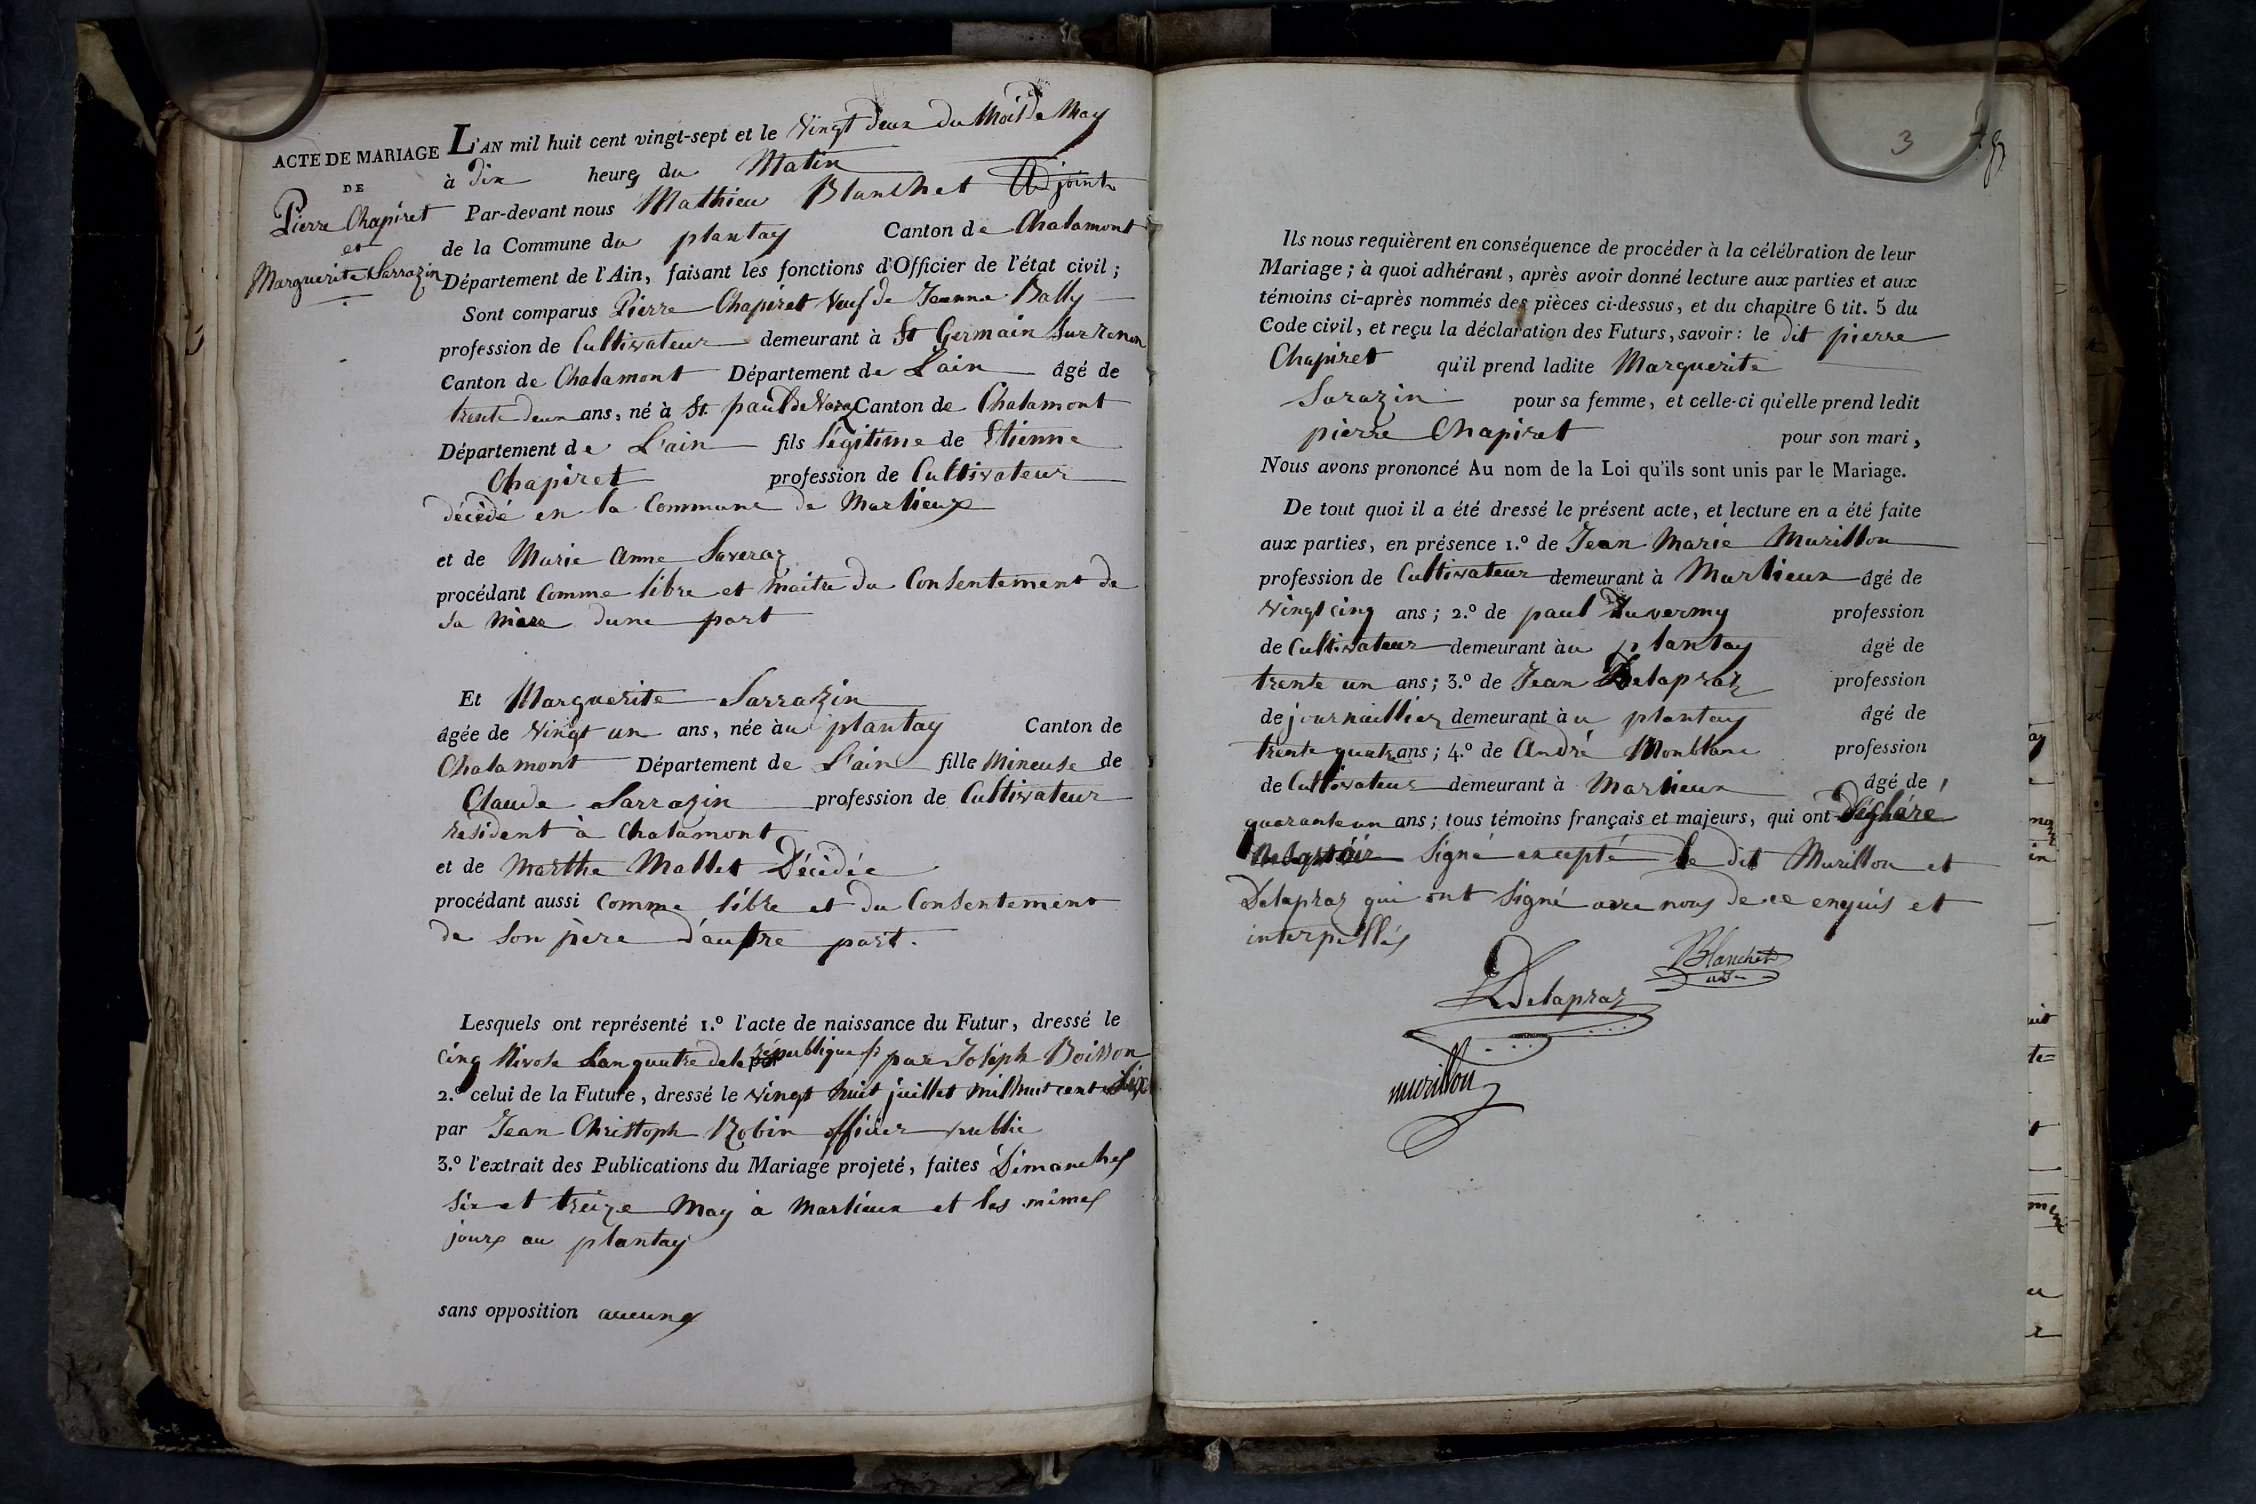 L'AN mil huit cent vingt-sept et le Vingt deux du Mois De May
ACTE DE MARIAGE
DE
Pierre Chapiret
et
Marguerite Sarrazin
à dix heures du Matin
Par-devant nous Mathieu Blanchet Adjoint
de la Commune du plantay Canton de Chalamont
Département de l'Ain, faisant les fonctions d'Officier de l'état civil ;
Sont comparus Pierre Chapiret Veuf de Jeanne Bally
profession de Cultivateur demeurant à St Germain Sur renon
Canton de Chalamont Département de L'ain âgé de
trente deux ans, né à St. paul de Varax Canton de Chalamont
Département de L'ain fils légitime de Etienne
Chapiret profession de Cultivateur
décédé en la Commune de Marlieux
et de Marie Anne Saveraz
procédant Comme libre et maitre du Consentement de
Sa Mère dune part
Et Marguerite Sarrazin
âgée de Vingt un ans, née àu plantay Canton de
Chalamont Département de L'ain fille Mineuse de
Claude Sarrazin profession de Cultivateur
résident à Chalamont
et de Marthe Mallet Décédée
procédant aussi Comme libre et du Consentement
de Son père d'autre part.
Lesquels ont représenté 1.º l'acte de naissance du Futur, dressé le
Cinq Nivose L'an quatre de la république fr par Joseph Boisson
2.º celui de la Future, dressé le Vingt huit juillet mil huit cent Six
par Jean Christoph Robin officier public
3.º l'extrait des Publications du Mariage projeté, faites Dimanches
Six et treize May à Marlieux et les mêmes
jours au plantay
sans opposition aucune
3
Ils nous requièrent en conséquence de procéder à la célébration de leur
Mariage ; à quoi adhérant, après avoir donné lecture aux parties et aux
témoins ci-après nommés des pièces ci-dessus, et du chapitre 6 tit. 5 du
Code civil, et reçu la déclaration des Futurs, savoir : le dit pierre
Chapiret qu'il prend ladite Marguerite
Sarazin pour sa femme, et celle-ci qu'elle prend ledit
pierre Chapiret pour son mari,
Nous avons prononcé Au nom de la Loi qu'ils sont unis par le Mariage.
De tout quoi il a été dressé le présent acte, et lecture en a été faite
aux parties, en présence 1.º de Jean Marie Murillon
profession de Cultivateur demeurant à Marlieux âgé de
Vingt cinq ans ; 2.º de paul Duvermy profession
de Cultivateur demeurant àu plantay âgé de
trente un ans ; 3.º de Jean Delapraz profession
de journaillier demeurant àu plantay âgé de
trente quatre ans ; 4.º de André Monblanc profession
de Cultivateur demeurant à Marlieux âgé de
quarante un ans ; tous témoins français et majeurs, qui ont
Signé excepté Le dit Murillon et
Delapraz qui ont Signé avec nous de ce enquis et
interpellés
Blanchet
adj
Delapraz
murillon